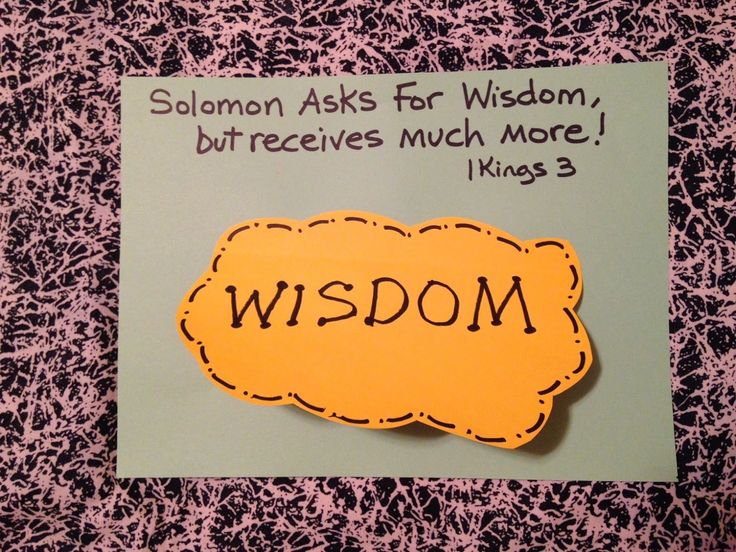 Solomon Asks For Wisdom,
but receives much more!
1 Kings 3
WISDOM